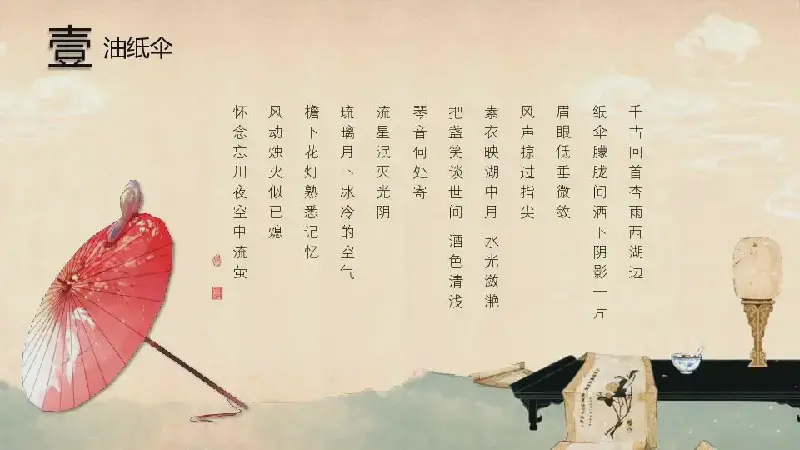 壹
油纸伞
千古回首杏雨西湖边
纸伞朦胧间洒下阴影一片
眉眼低垂微敛
风声掠过指尖
素衣映湖中月 水光潋滟
把盏笑谈世间 酒色清浅
琴音何处寄
流星泯灭光阴
琉璃月下冰冷的空气
檐下花灯熟悉记忆
风动烛火似已熄
怀念忘川夜空中流萤